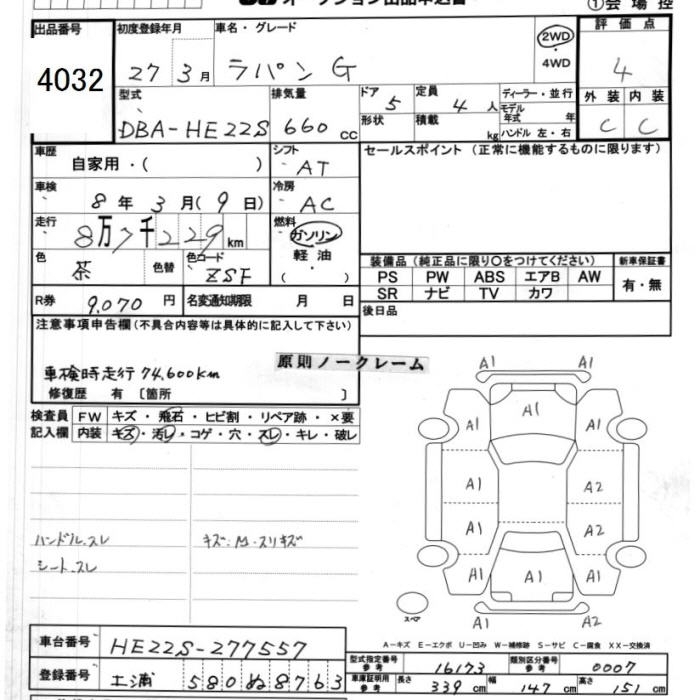 オークション出品申込書
①会場控
出品番号 初度登録年月 車名・グレード 評価点
4032 27年 3月 ラパン G 2WD 4WD 4
型式 排気量 ドア 定員 ディーラー・並行 外装 内装
DBA-HE22S 660 cc 5 4人 モデル年式 年 C C
形状 積載 kg ハンドル 左・右
車歴 シフト セールスポイント (正常に機能するものに限ります)
自家用・( ) AT
車検 冷房
8年 3月(9日) AC
走行 燃料
8万7千229km ガソリン
軽油
( )
色 色替 色コード 装備品(純正品に限り○をつけてください) 新車保証書
茶 ZSF PS PW ABS エアB AW 有・無
SR ナビ TV カワ
R券 9,070円 名変通知期限 月 日 後日品
注意事項申告欄(不具合内容等は具体的に記入して下さい)
原則ノークレーム
車検時走行 74,600km
修復歴 有 〔箇所 〕
検査員 FW キズ・飛石・ヒビ割・リペア跡・×要
記入欄 内装 キズ・汚レ・コゲ・穴・スレ・キレ・破レ
A1 A1
A1 A1 A1
A1 A2
A1 A2
A1 A1 A1
スペア
A1 A2
ハンドル.スレ キズ・M・スリキズ
シート.スレ
A-キズ E-エクボ U-凹み W-補修跡 S-サビ C-腐食 XX-交換済
車台番号 HE22S-277557
型式指定番号 参考 16173 類別区分番号 参考 0007
登録番号 土浦 580 ぬ 8763
車庫証明用 参考 長さ 339 cm 幅 147 cm 高さ 151 cm